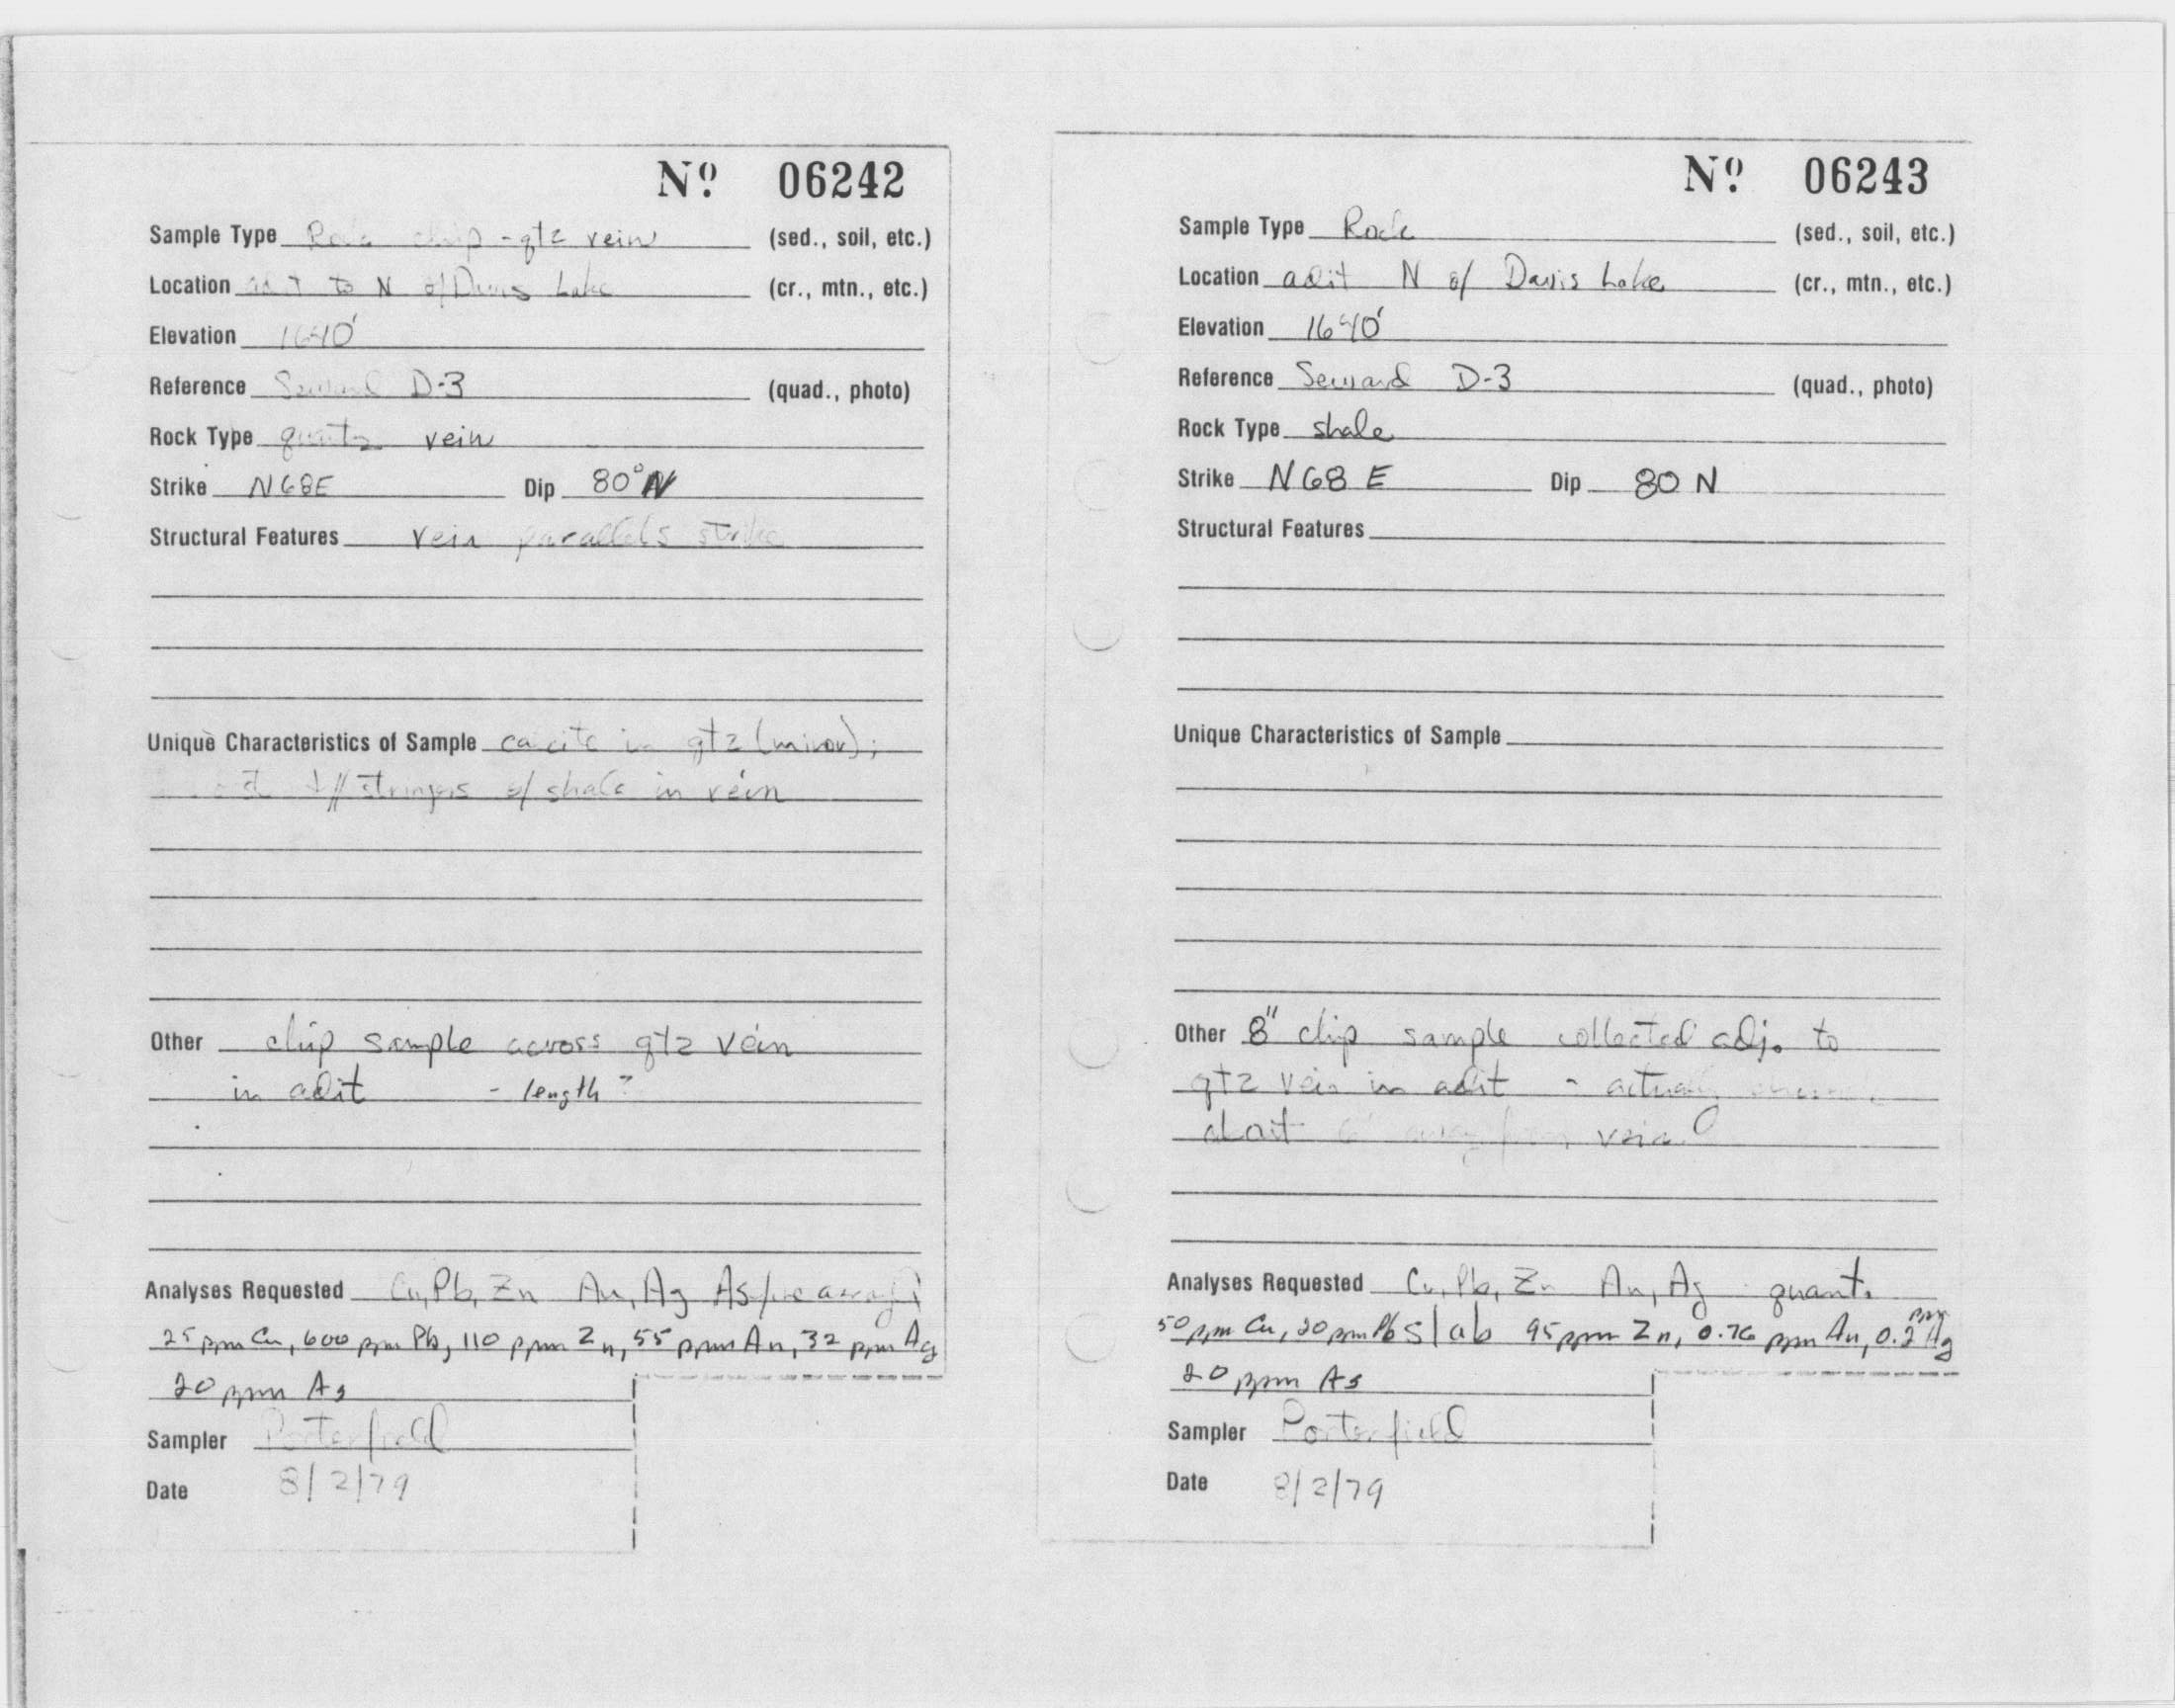 Nº 06242
Sample Type Rock chip - qtz vein (sed., soil, etc.)
Location adit to N of Davis Lake (cr., mtn., etc.)
Elevation 1640'
Reference Seward D-3 (quad., photo)
Rock Type quartz vein
Strike N68E Dip 80°N
Structural Features vein parallels strike
Unique Characteristics of Sample calcite in qtz (minor);
stringers of shale in vein
Other chip sample across qtz vein
in adit - length?
Analyses Requested Cu, Pb, Zn Au, Ag As
25 ppm Cu, 600 ppm Pb, 110 ppm Zn, 55 ppm Au, 32 ppm Ag
20 ppm As
Sampler Porterfield
Date 8/2/79
Nº 06243
Sample Type Rock (sed., soil, etc.)
Location adit N of Davis Lake (cr., mtn., etc.)
Elevation 1640'
Reference Seward D-3 (quad., photo)
Rock Type shale
Strike N68 E Dip 80 N
Structural Features
Unique Characteristics of Sample
Other 8" chip sample collected adj. to
qtz vein in adit - actually
about away from vein
Analyses Requested Cu, Pb, Zn Au, Ag quant.
50 ppm Cu, 20 ppm Pb slab 95 ppm Zn, 0.76 ppm Au, 0.2 ppm Ag
20 ppm As
Sampler Porterfield
Date 8/2/79